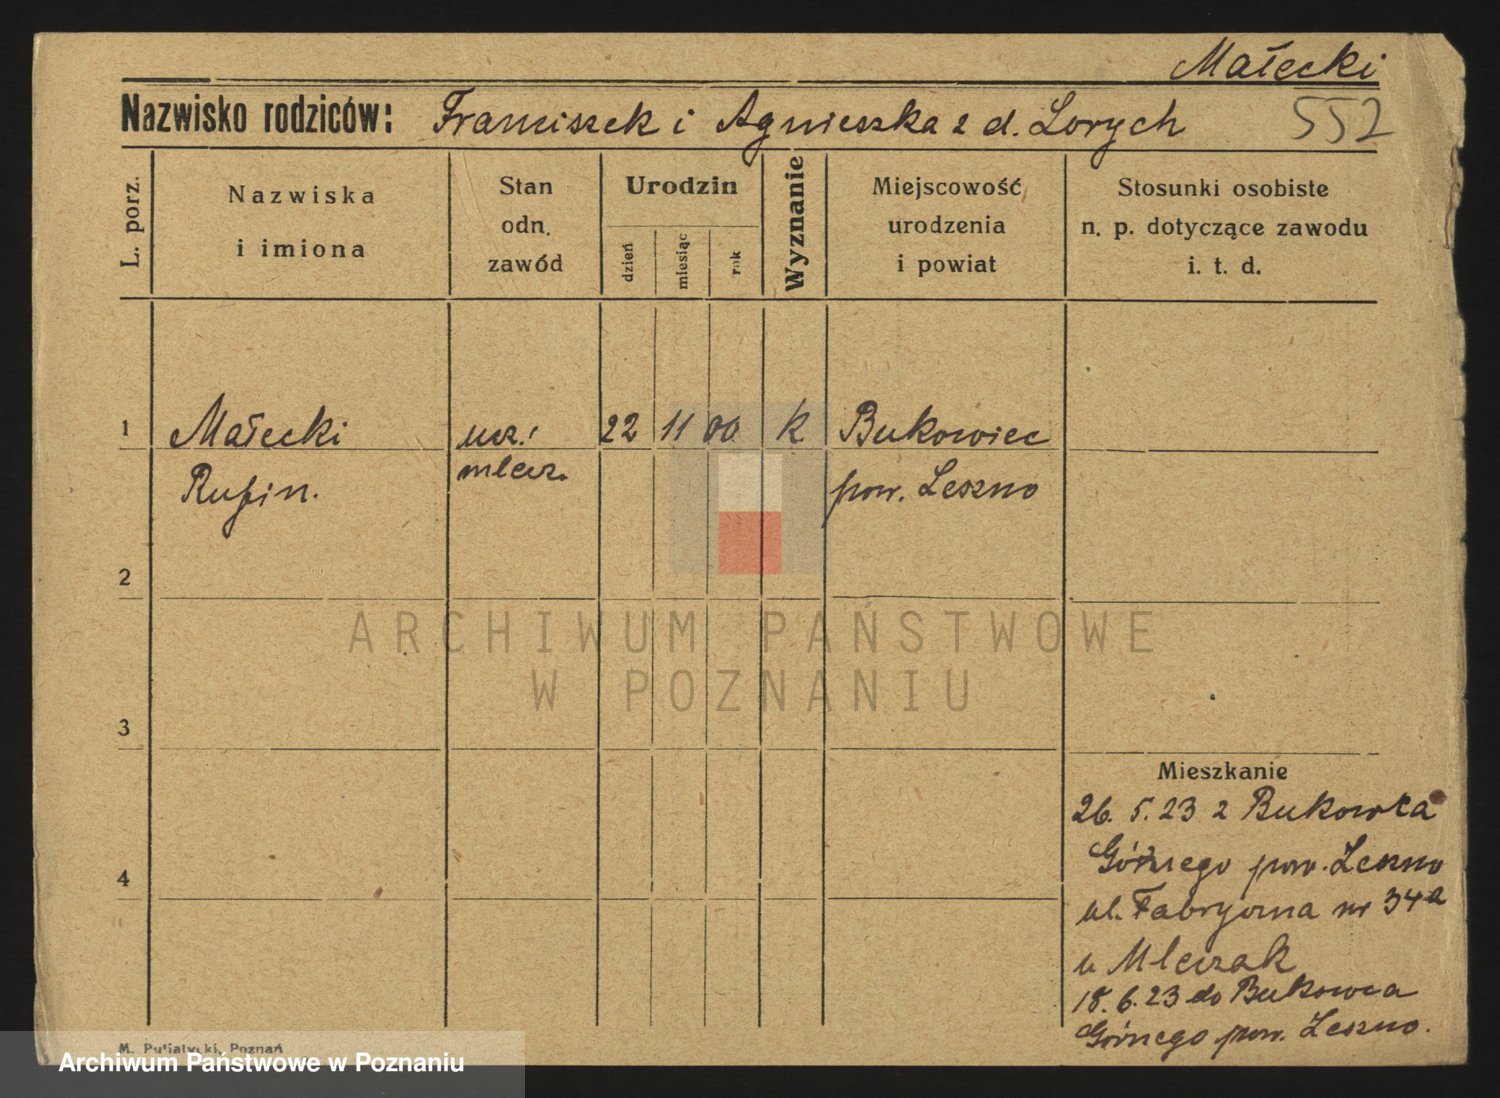 Małecki
Nazwisko rodziców: Franciszek i Agnieszka z d. Lorych
552
L. porz.
Nazwiska
i imiona
Stan
odn.
zawód
Urodzin
dzień
miesiąc
rok
Wyznanie
Miejscowość
urodzenia
i powiat
Stosunki osobiste
n. p. dotyczące zawodu
i. t. d.
1 Małecki ucz. 22 11 00 K Bukowiec
Rufin. mlecz. pow. Leszno
2
ARCHIWUM PAŃSTWOWE
W POZNANIU
3
Mieszkanie
26. 5. 23 z Bukowca
4
Górnego pow. Leszno
ul. Fabryczna nr 34a
u Mleczak
18. 6. 23 do Bukowca
Górnego pow. Leszno.
M. Putiatycki, Poznań
Archiwum Państwowe w Poznaniu